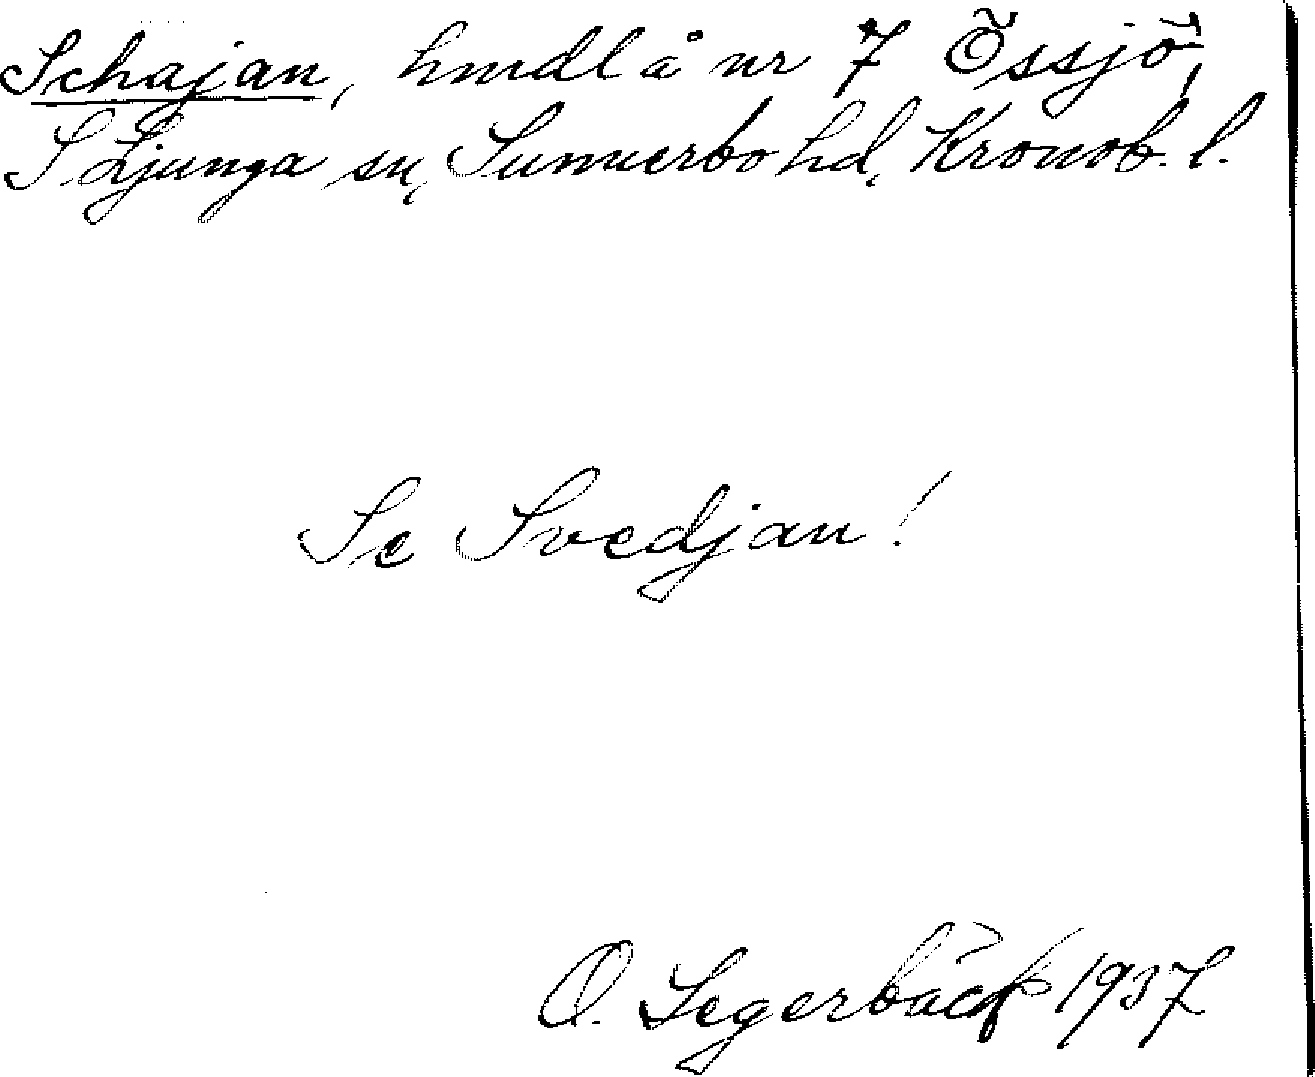 Schajan, hmdl å nr 7 Össjö,
S. Ljunga sn, Sunnerbo hd, Kronob. l.
Se Svedjan!
O. Segerbäck 1937